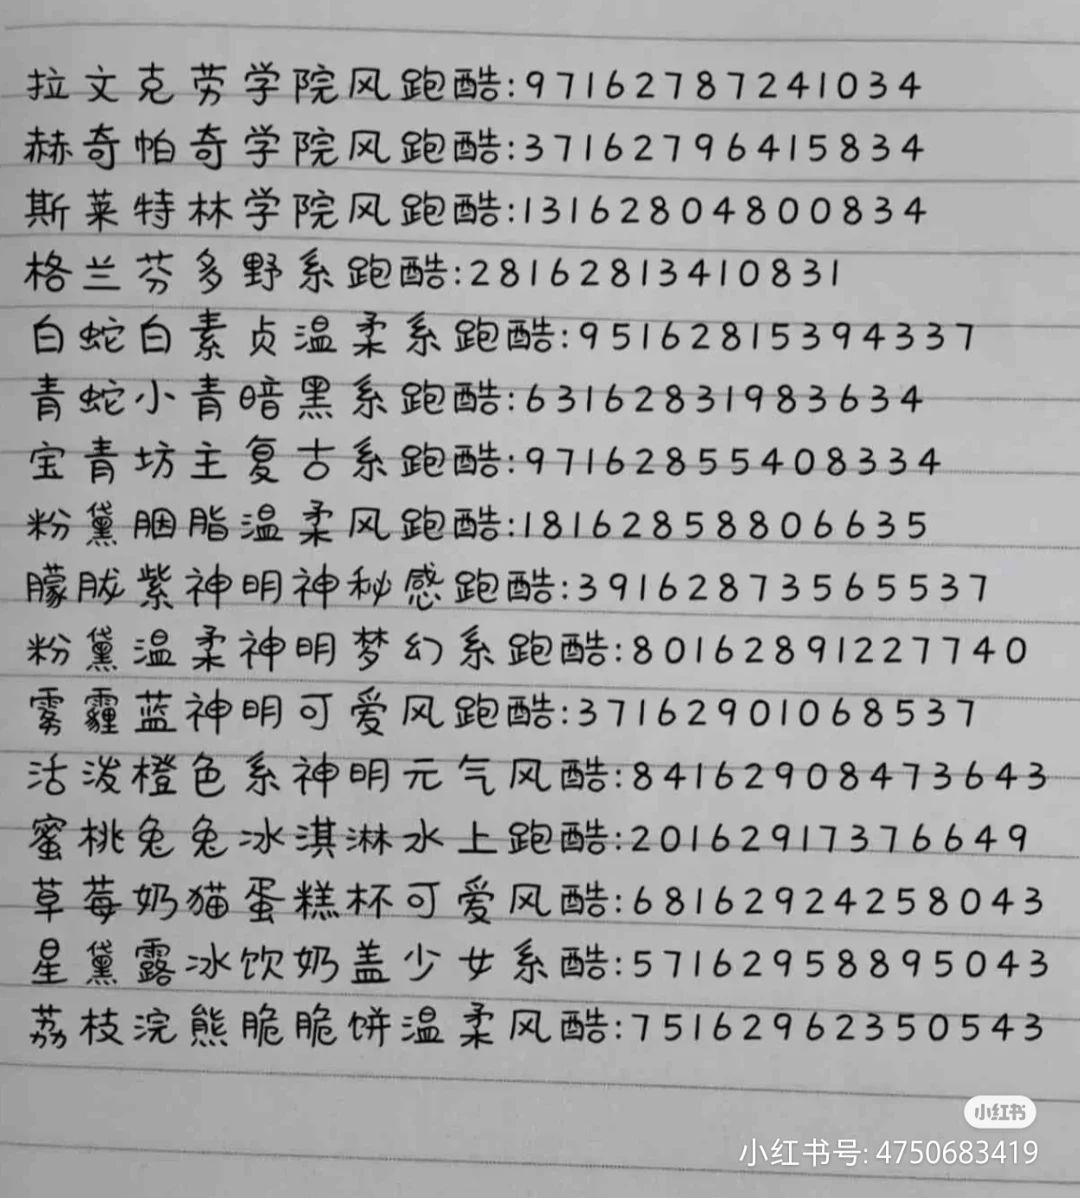 拉文克劳学院风跑酷:97162787241034
赫奇帕奇学院风跑酷:37162796415834
斯莱特林学院风跑酷:13162804800834
格兰芬多野系跑酷:28162813410831
白蛇白素贞温柔系跑酷:95162815394337
青蛇小青暗黑系跑酷:63162831983634
宝青坊主复古系跑酷:97162855408334
粉黛胭脂温柔风跑酷:18162858806635
朦胧紫神明神秘感跑酷:39162873565537
粉黛温柔神明梦幻系跑酷:80162891227740
雾霾蓝神明可爱风跑酷:37162901068537
活泼橙色系神明元气风酷:84162908473643
蜜桃兔兔冰淇淋水上跑酷:20162917376649
草莓奶猫蛋糕杯可爱风酷:68162924258043
星黛露冰饮奶盖少女系酷:57162958895043
荔枝浣熊脆脆饼温柔风酷:75162962350543
小红书
小红书号: 4750683419